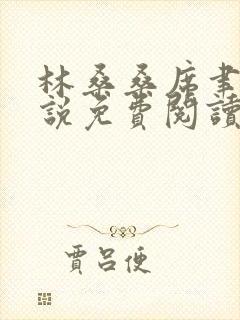 林桑桑席聿
說免費閱讀
賈呂便